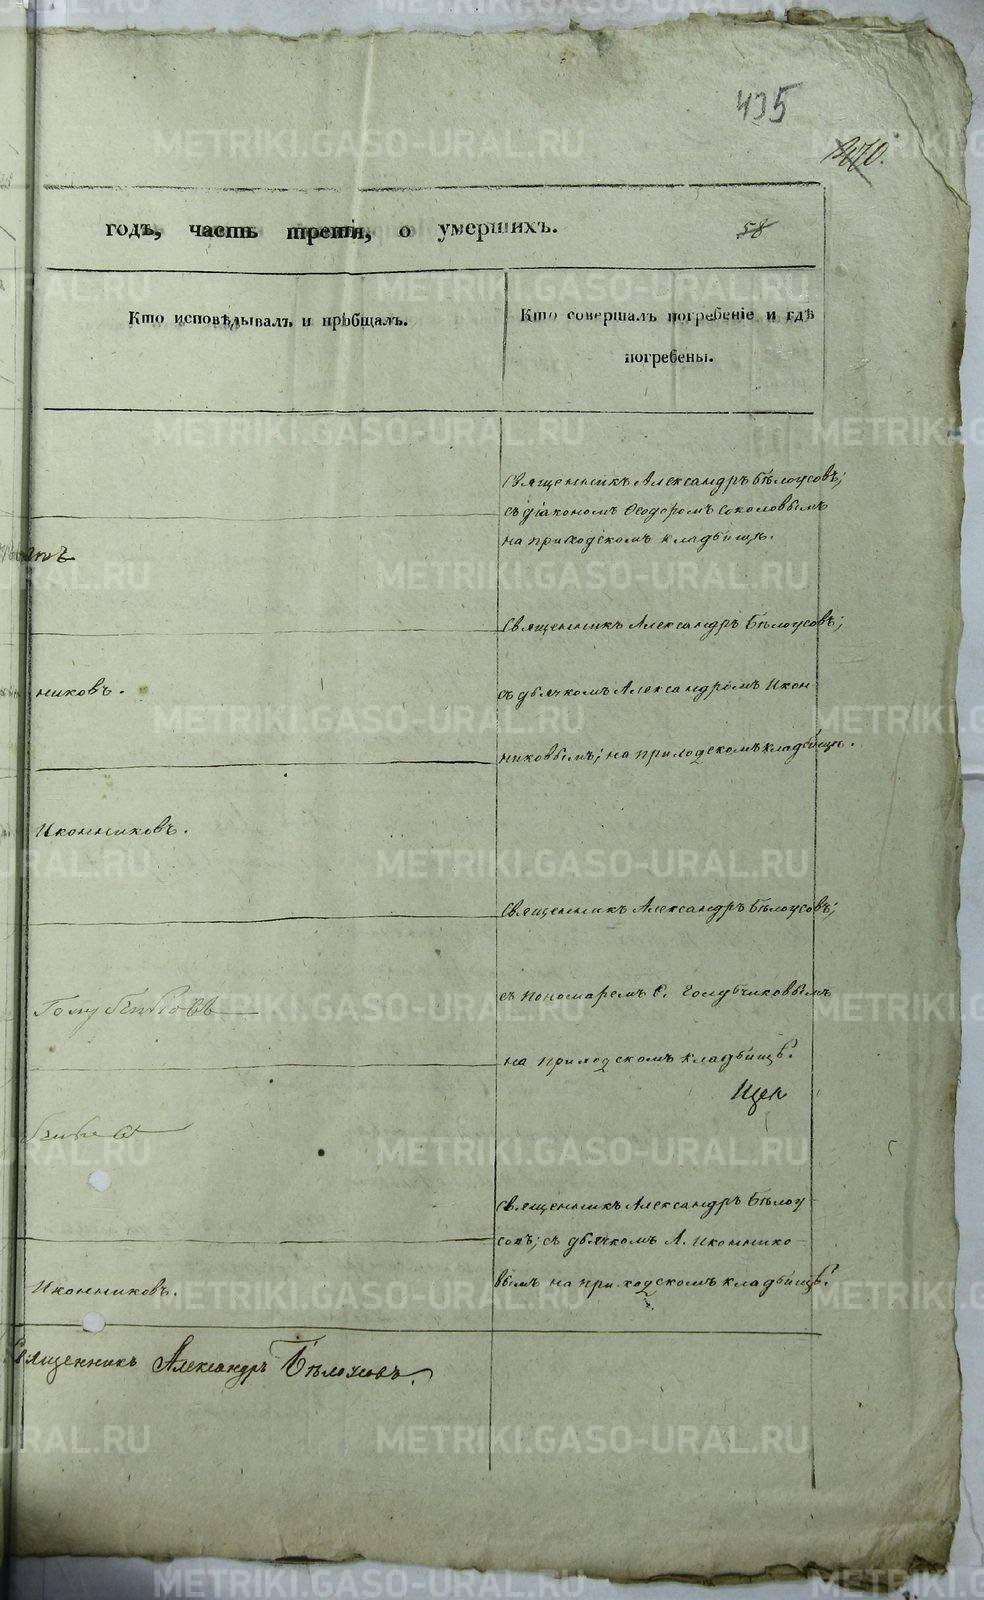 435
годъ, часть третія, о умершихъ.
58
Кто исповѣдывалъ и прѣбщалъ.
Кто совершалъ погребеніе и гдѣ
погребены.
Священникъ Александръ Бѣлоусовъ;
съ діакономъ Ѳеодоромъ Соколовымъ
на приходскомъ кладбищѣ.
Священникъ Александръ Бѣлоусовъ;
никовъ.
съ дьячкомъ Александромъ Икон
никовымъ; на приходскомъ кладбищѣ.
Иконниковъ.
Священникъ Александръ Бѣлоусовъ;
съ пономаремъ С. Голубчиковымъ
на приходскомъ кладбищѣ.
Священникъ Александръ Бѣлоу
совъ; съ дьячкомъ А. Иконнико
Иконниковъ.
вымъ на приходскомъ кладбищѣ.
Священникъ Александръ Бѣлоусовъ.
METRIKI.GASO-URAL.RU